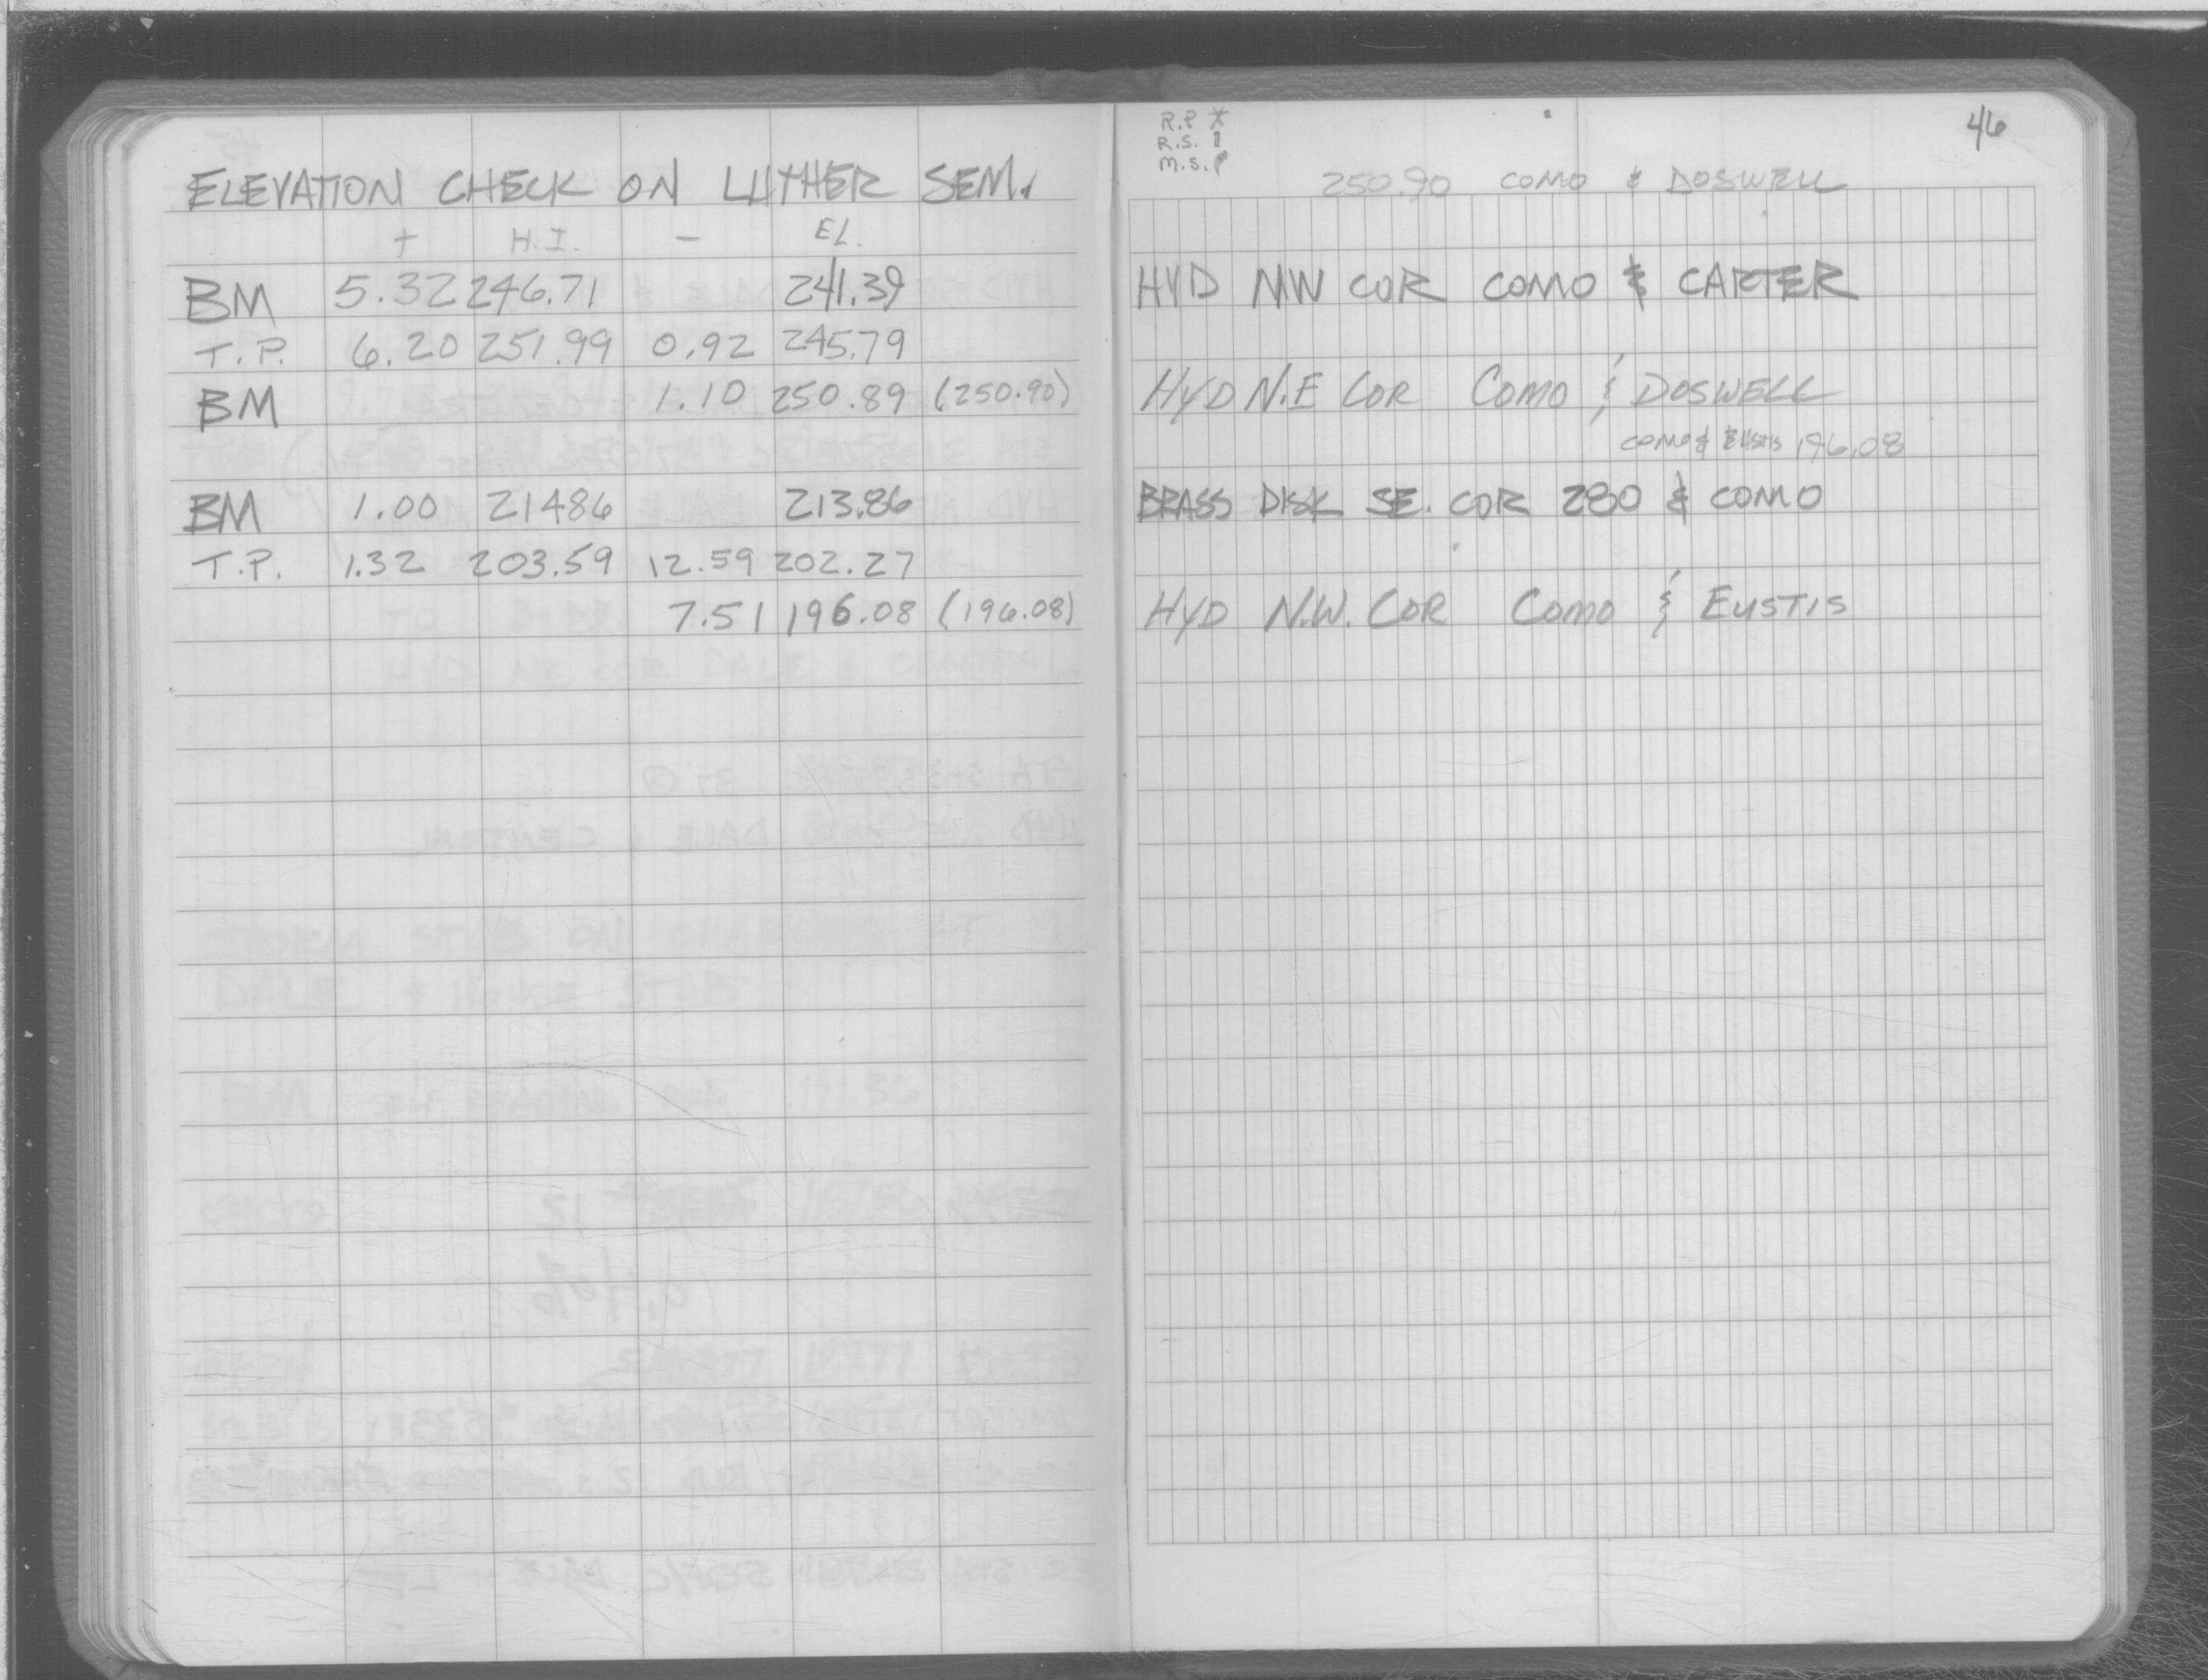 ELEVATION CHECK ON LUTHER SEM.
+ H.I. - EL.
BM 5.32 246.71 241.39
T.P. 6.20 251.99 0.92 245.79
BM 1.10 250.89 (250.90)
BM 1.00 21486 213.86
T.P. 1.32 203.59 12.59 202.27
7.51 196.08 (196.08)
46
R.P
R.S.
M.S.
250.90 COMO & DOSWELL
HYD NW COR COMO & CARTER
HYD N.E COR COMO & DOSWELL
COMO & EUSTIS 196.08
BRASS DISK SE. COR 280 & COMO
HYD N.W. COR COMO & EUSTIS